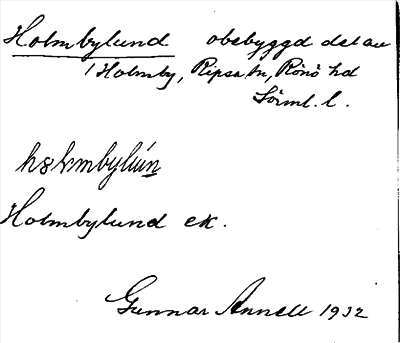 Holmbylund obebyggd del av
1 Holmby, Ripsa sn, Rönö hd
Sörml. l.
Holmbylund ek.
Gunnar Annell 1932